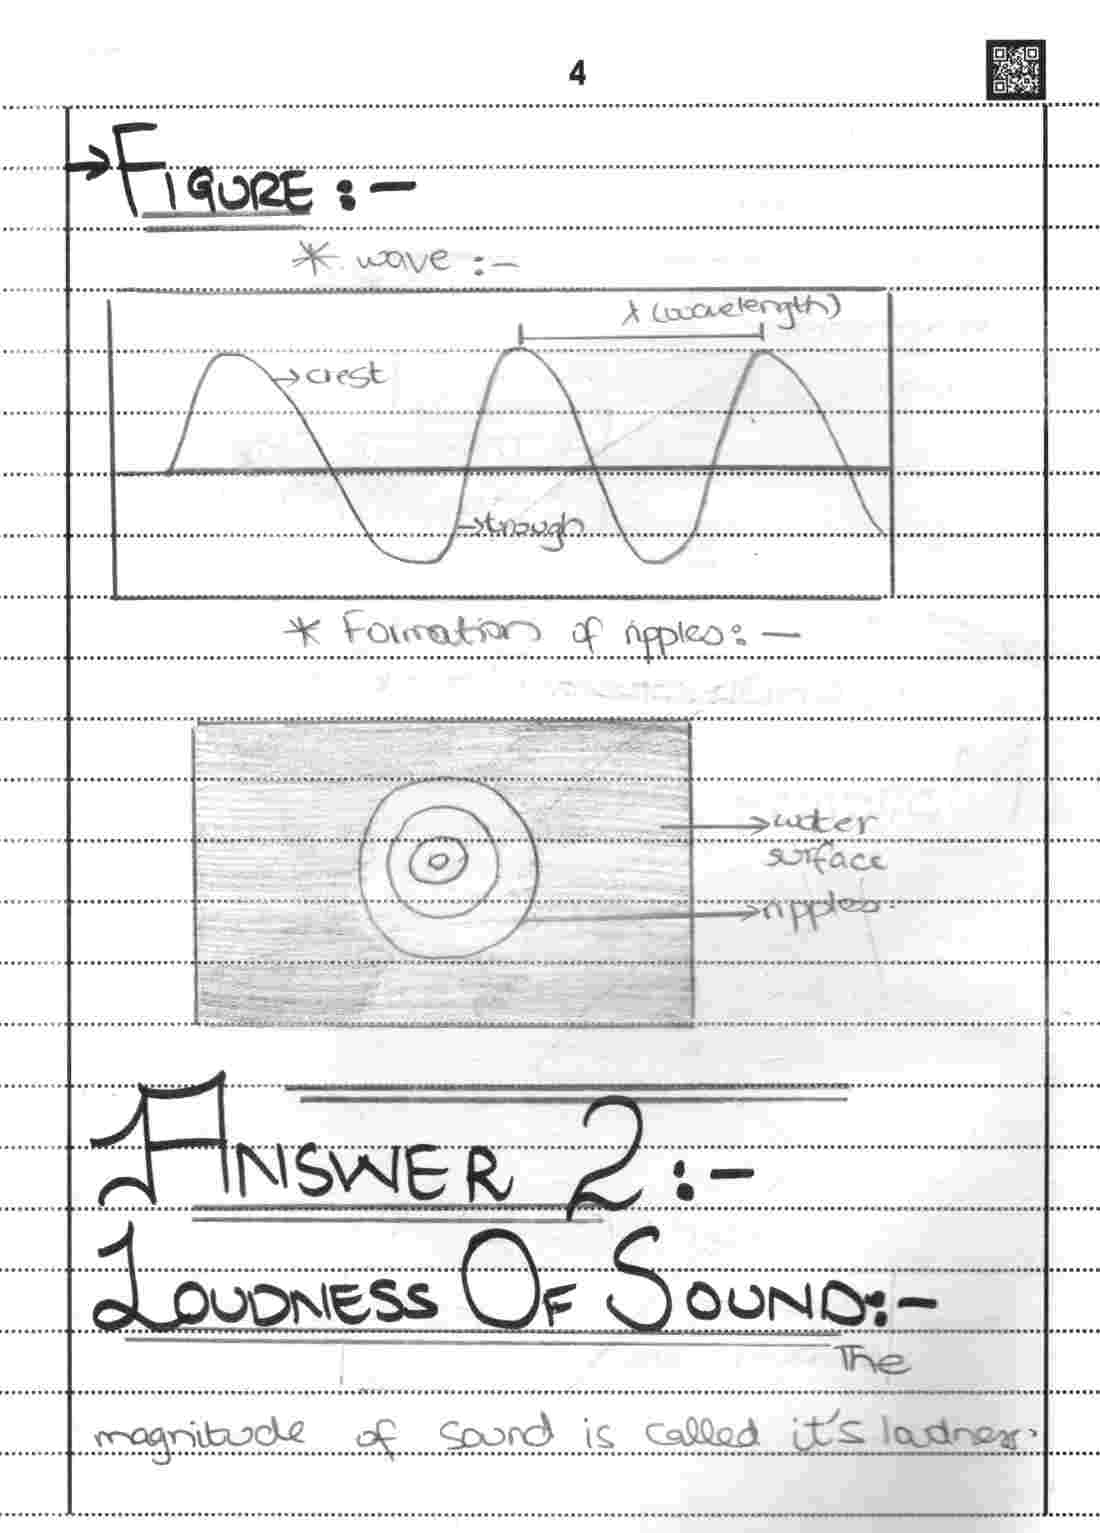 4
→FIGURE :-
* wave :-
λ (wavelength)
→crest
→trough
* Formation of ripples: —
→water
surface
→ripples.
ANSWER 2 :-
LOUDNESS OF SOUND:-
The
magnitude of sound is called it's loudness.